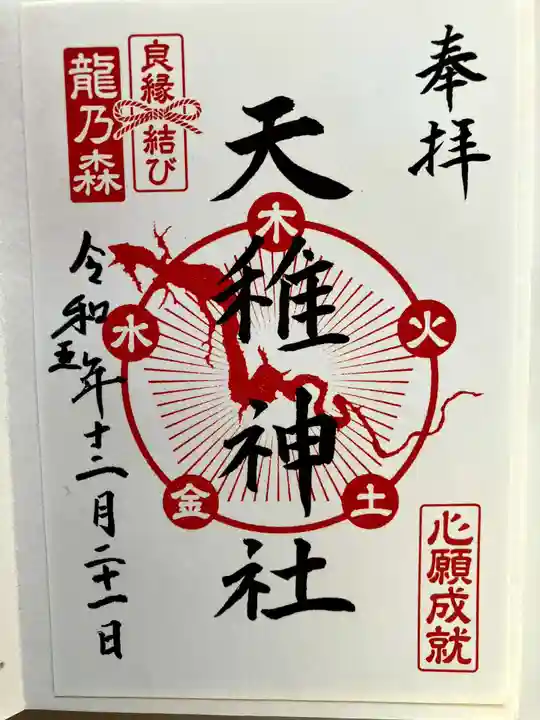 奉拝
天稚神社
木
火
土
金
水
心願成就
良縁結び
龍乃森
令和五年十二月二十一日